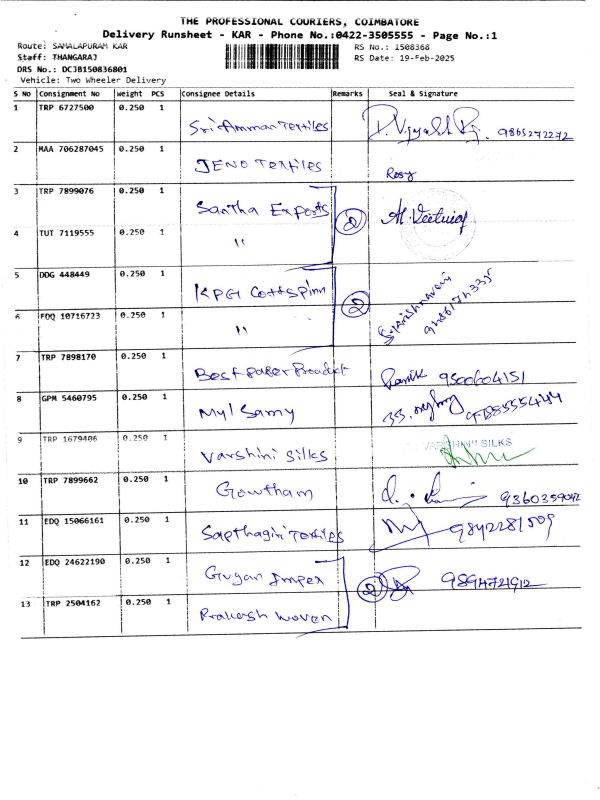 THE PROFESSIONAL COURIERS, COIMBATORE
Delivery Runsheet - KAR - Phone No.:0422-3505555 - Page No.:1
Route: SAMALAPURAM KAR RS No.: 1508368
Staff: THANGARAJ RS Date: 19-Feb-2025
DRS No.: DCJB150836801
Vehicle: Two Wheeler Delivery
S No Consignment No Weight PCS Consignee Details Remarks Seal & Signature
1 TRP 6727500 0.250 1 Sri Amman Textiles 9865272272
2 MAA 706287045 0.250 1 JENO Textiles Rosy
3 TRP 7899076 0.250 1 Santha Exports 2
4 TUT 7119555 0.250 1 "
5 DDG 448449 0.250 1 KPG Cottspinn 2
6 EDQ 10716723 0.250 1 "
7 TRP 7898170 0.250 1 Best paper Product 9500604151
8 GPM 5460795 0.250 1 Myl Samy
9 TRP 1679406 0.250 1 Varshini Silks VARSHINI SILKS
10 TRP 7899662 0.250 1 Gowtham
11 EDQ 15066161 0.250 1 Sapthagiri Textiles 9842281509
12 EDQ 24622190 0.250 1 Gugan Impex 2 9894721912
13 TRP 2504162 0.250 1 Prakash woven